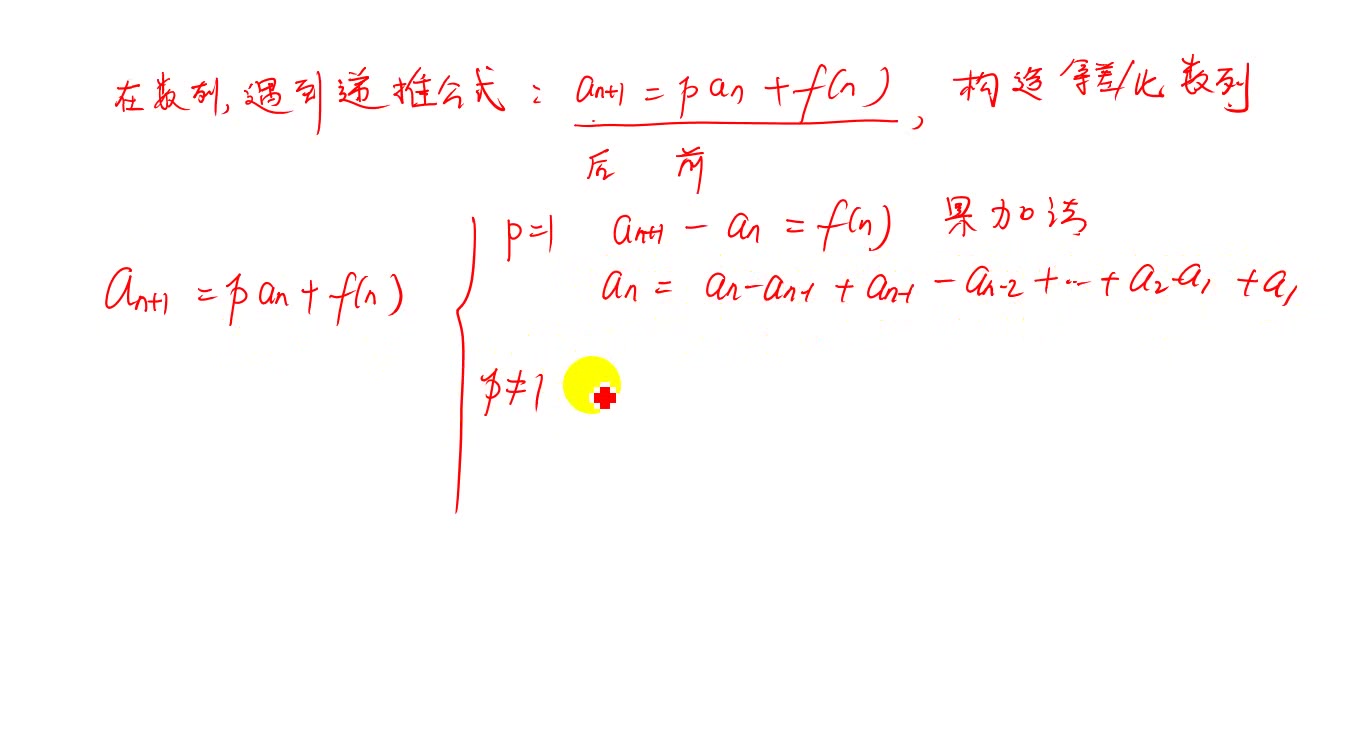 在数列,遇到递推公式: aₙ₊₁ = p aₙ + f(n), 构造等差/比数列
后 前
p=1 aₙ₊₁ - aₙ = f(n) 累加法
aₙ₊₁ = p aₙ + f(n)
aₙ = aₙ - aₙ₋₁ + aₙ₋₁ - aₙ₋₂ + … + a₂ - a₁ + a₁
p≠1